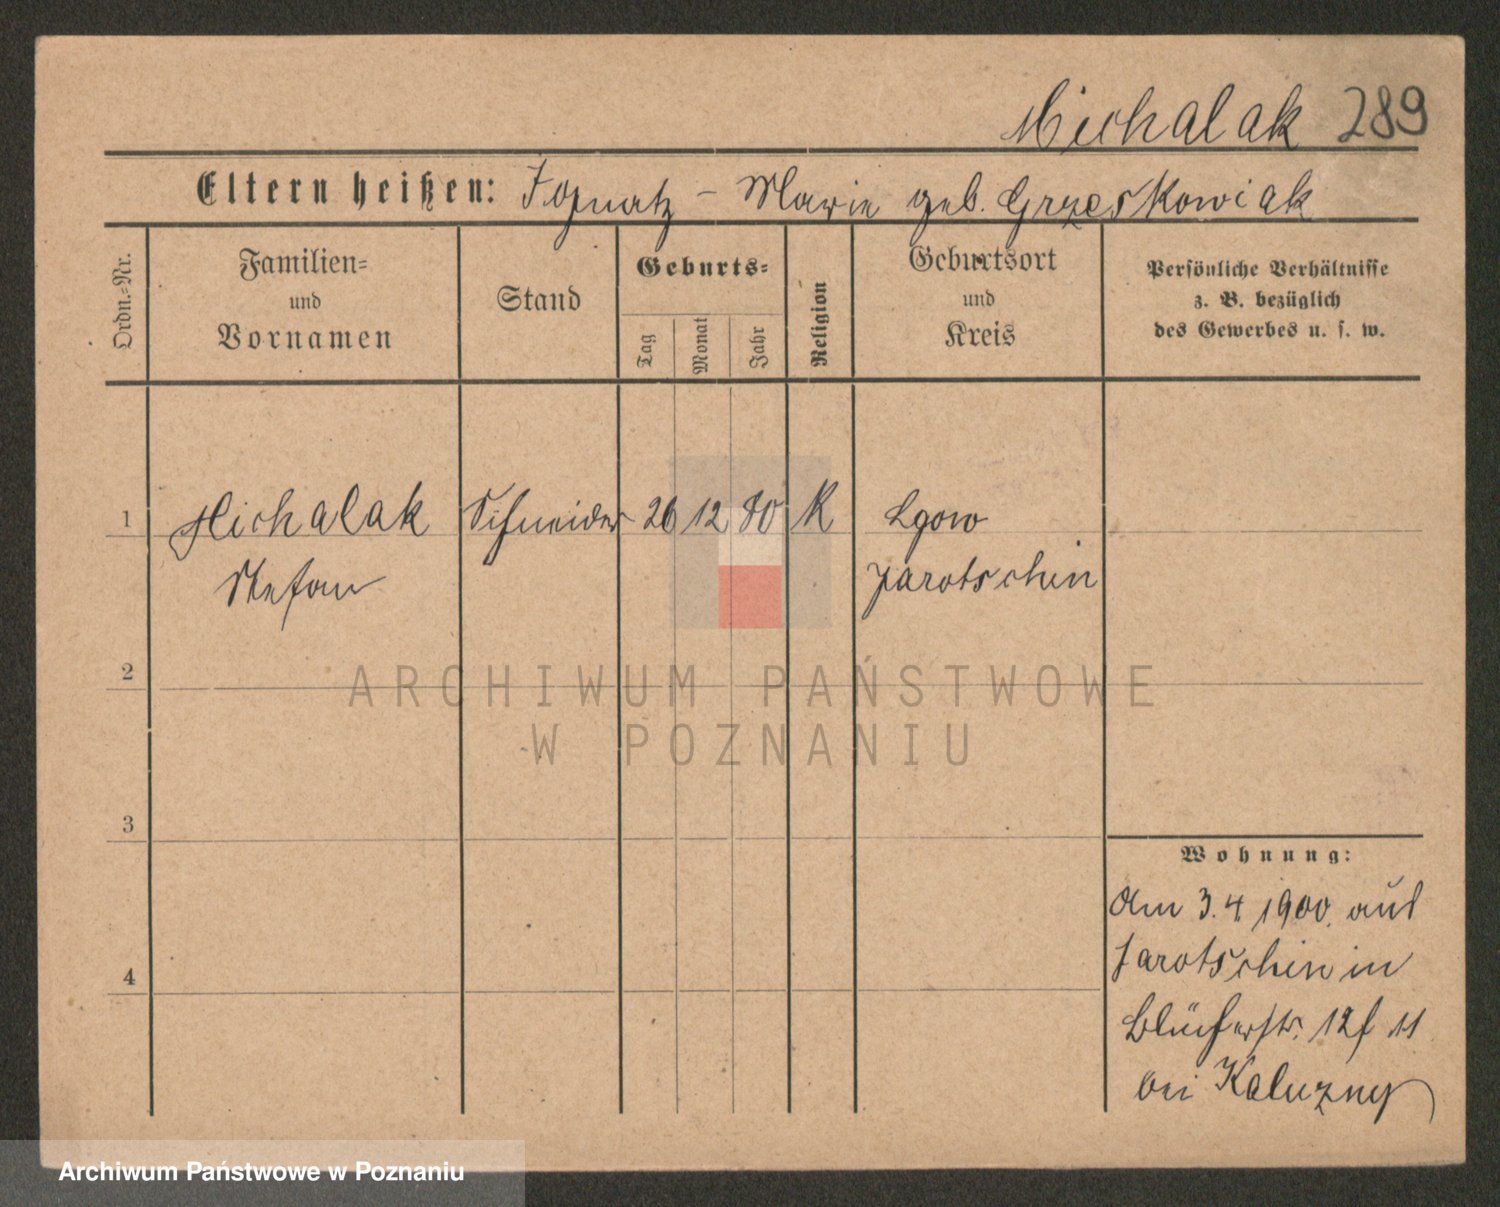 Michalak 289
Eltern heißen: Ignatz - Marie geb. Grzeskowiak
Ordn.-Nr.
Familien-
und
Vornamen
Stand
Geburts-
Tag
Monat
Jahr
Religion
Geburtsort
und
Kreis
Persönliche Verhältnisse
z. B. bezüglich
des Gewerbes u. s. w.
1 Michalak Schneider 26 12 80 K Lgow
Stefan Jarotschin
2
ARCHIWUM PAŃSTWOWE
W POZNANIU
3
Wohnung:
Am 3.4.1900. aus
Jarotschin in
4
Blücherstr. 12 11
bei Kaluzny
Archiwum Państwowe w Poznaniu